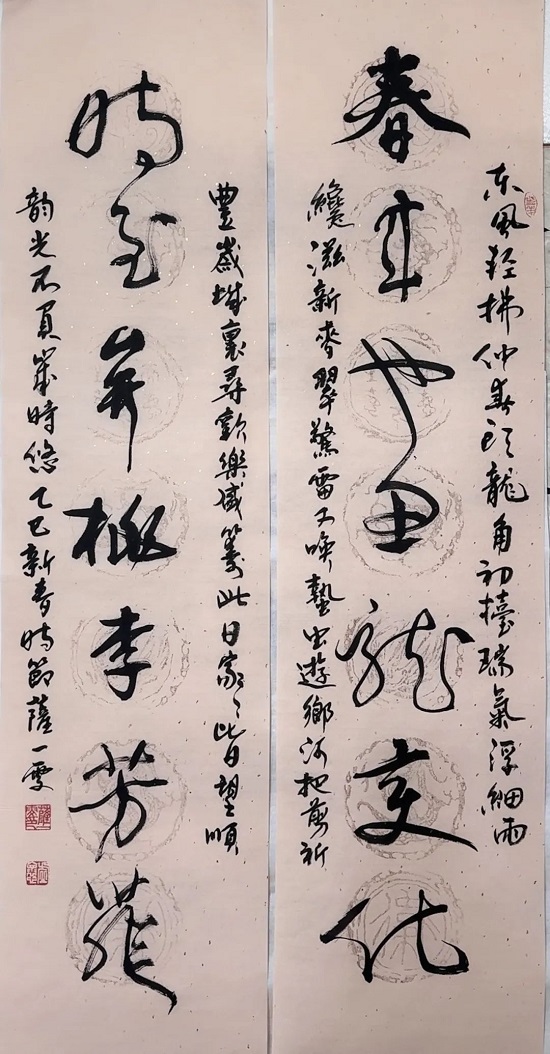 东风轻拂仲春头龍角初擡瑞氣浮細雨
春来也田龙变化
纔滋新麥翠驚雷又唤蟄虫遊鄉河把剪祈
豐歲城裏尋歡樂盛筹此日家〻皆望順
時至矣桃李芳菲
韵光不負歲時悠乙巳新春時節薩一雯